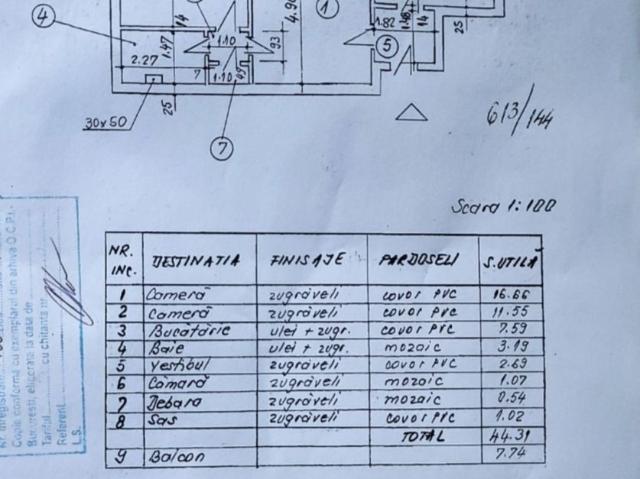 14
4.90
1
1.82
1.48
14
25
4
1.47
1.10
93
5
2.27
7
1.10
49
25
30x50
7
613/144
Scara 1:100
NR. INC. DESTINATIA FINISAJE PARDOSELI S.UTILĂ
1 Cameră zugrăveli covor PVC 16.66
2 Cameră zugrăveli covor PVC 11.55
3 Bucătărie ulei + zugr. covor PVC 7.59
4 Baie ulei + zugr. mozaic 3.19
5 Vestibul zugrăveli covor PVC 2.69
6 Cămară zugrăveli mozaic 1.07
7 Debara zugrăveli mozaic 0.54
8 Sas zugrăveli covor PVC 1.02
TOTAL 44.31
9 Balcon 7.74
Copie conformă cu exemplarul din arhiva O.C.P.I.
Bucuresti, eliberata la data de
Tariful cu chitanta nr
Referent
L.S.